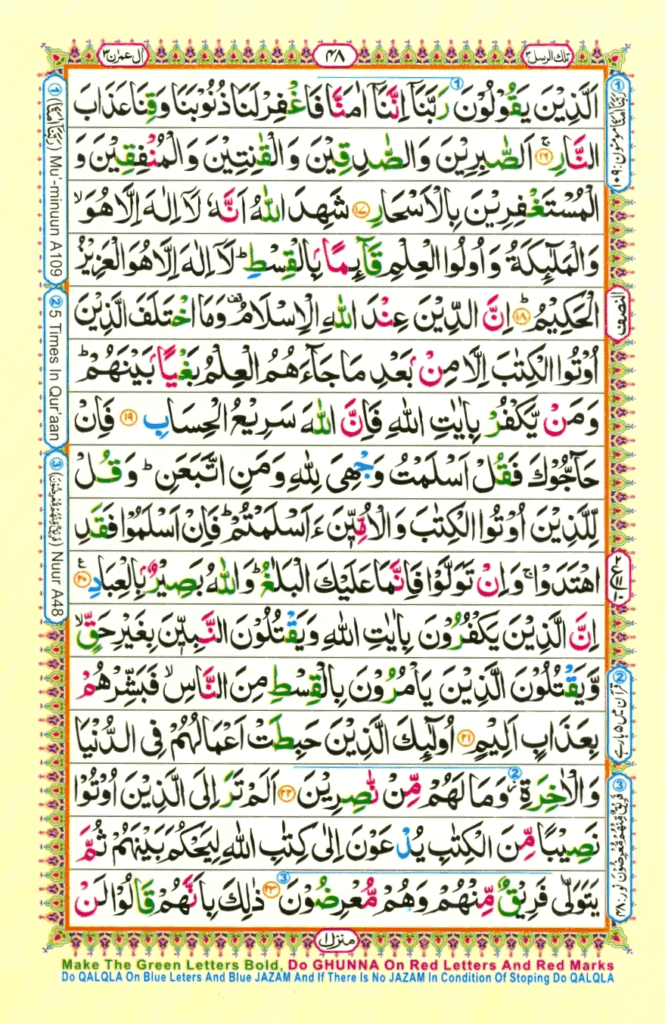 تلك الرسل ٣
٤٨
اٰل عمرٰن ٣
اَلَّذِيْنَ يَقُوْلُوْنَ رَبَّنَاۤ اِنَّنَاۤ اٰمَنَّا فَاغْفِرْ لَنَا ذُنُوْبَنَا وَقِنَا عَذَابَ
النَّارِۚ‏ ﴿۱۶﴾ اَلصّٰبِرِيْنَ وَالصّٰدِقِيْنَ وَالْقٰنِتِيْنَ وَالْمُنْفِقِيْنَ وَ
الْمُسْتَغْفِرِيْنَ بِالْاَسْحَارِ ﴿۱۷﴾ شَهِدَ اللّٰهُ اَنَّهٗ لَاۤ اِلٰهَ اِلَّا هُوَۙ
وَالْمَلٰٓئِكَةُ وَاُولُوا الْعِلْمِ قَآئِمًاۢ بِالْقِسْطِؕ لَاۤ اِلٰهَ اِلَّا هُوَ الْعَزِيْزُ
الْحَكِيْمُؕ ﴿۱۸﴾ اِنَّ الدِّيْنَ عِنْدَ اللّٰهِ الْاِسْلَامُ وَمَا اخْتَلَفَ الَّذِيْنَ
اُوْتُوا الْكِتٰبَ اِلَّا مِنْۢ بَعْدِ مَا جَآءَهُمُ الْعِلْمُ بَغْيًاۢ بَيْنَهُمْؕ
وَمَنْ يَّكْفُرْ بِاٰيٰتِ اللّٰهِ فَاِنَّ اللّٰهَ سَرِيْعُ الْحِسَابِ ﴿۱۹﴾ فَاِنْ
حَآجُّوْكَ فَقُلْ اَسْلَمْتُ وَجْهِىَ لِلّٰهِ وَمَنِ اتَّبَعَنِؕ وَقُلْ
لِّلَّذِيْنَ اُوْتُوا الْكِتٰبَ وَالْاُمِّيّٖنَ ءَاَسْلَمْتُمْؕ فَاِنْ اَسْلَمُوْا فَقَدِ
اهْتَدَوْاۚ وَاِنْ تَوَلَّوْا فَاِنَّمَا عَلَيْكَ الْبَلٰغُؕ وَاللّٰهُ بَصِيْرٌۢ بِالْعِبَادِ ﴿۲۰﴾
اِنَّ الَّذِيْنَ يَكْفُرُوْنَ بِاٰيٰتِ اللّٰهِ وَيَقْتُلُوْنَ النَّبِيّٖنَ بِغَيْرِ حَقٍّۙ
وَّيَقْتُلُوْنَ الَّذِيْنَ يَاْمُرُوْنَ بِالْقِسْطِ مِنَ النَّاسِۙ فَبَشِّرْهُمْ
بِعَذَابٍ اَلِيْمٍ ﴿۲۱﴾ اُولٰٓئِكَ الَّذِيْنَ حَبِطَتْ اَعْمَالُهُمْ فِى الدُّنْيَا
وَالْاٰخِرَةِ وَمَا لَهُمْ مِّنْ نّٰصِرِيْنَ ﴿۲۲﴾ اَلَمْ تَرَ اِلَى الَّذِيْنَ اُوْتُوْا
نَصِيْبًا مِّنَ الْكِتٰبِ يُدْعَوْنَ اِلٰى كِتٰبِ اللّٰهِ لِيَحْكُمَ بَيْنَهُمْ ثُمَّ
يَتَوَلّٰى فَرِيْقٌ مِّنْهُمْ وَهُمْ مُّعْرِضُوْنَ ﴿۲۳﴾ ذٰلِكَ بِاَنَّهُمْ قَالُوْا لَنْ
منزل ١
① (رَبَّنَاۤ اٰمَنَّا) Mu'-minuun A109
② 5 Times In Qur'aan
③ (فَرِيْقٌ مِّنْهُمْ مُّعْرِضُوْنَ) Nuur A48
① رَبَّنَاۤ اٰمَنَّا مومنون : ١٠٩
النصف
② قرآن میں ۵ بار ہے
③ فَرِيْقٌ مِّنْهُمْ مُّعْرِضُوْنَ نور : ٤٨
Make The Green Letters Bold, Do GHUNNA On Red Letters And Red Marks
Do QALQLA On Blue Leters And Blue JAZAM And If There Is No JAZAM In Condition Of Stoping Do QALQLA